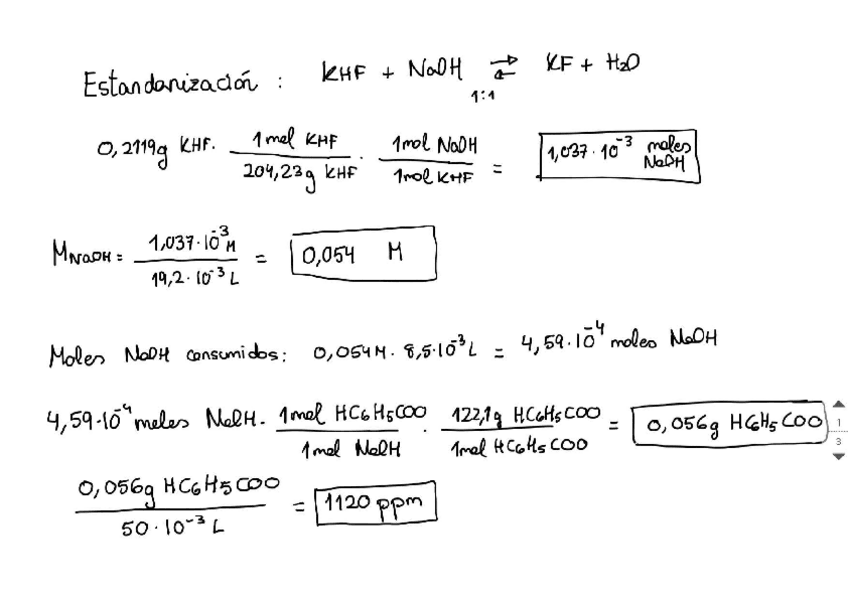 Estandarización : KHF + NaOH ⇌ KF + H₂O
1:1
0,2119g KHF · 1 mol KHF / 204,23g KHF · 1 mol NaOH / 1 mol KHF = 1,037 · 10⁻³ moles NaOH
M NaOH = 1,037·10⁻³ M / 19,2·10⁻³ L = 0,054 M
Moles NaOH consumidos: 0,054 M · 8,5·10⁻³ L = 4,59·10⁻⁴ moles NaOH
4,59·10⁻⁴ moles NaOH · 1 mol HC6H5COO / 1 mol NaOH · 122,1g HC6H5COO / 1 mol HC6H5COO = 0,056g HC6H5COO
0,056g HC6H5COO / 50·10⁻³ L = 1120 ppm
1
3